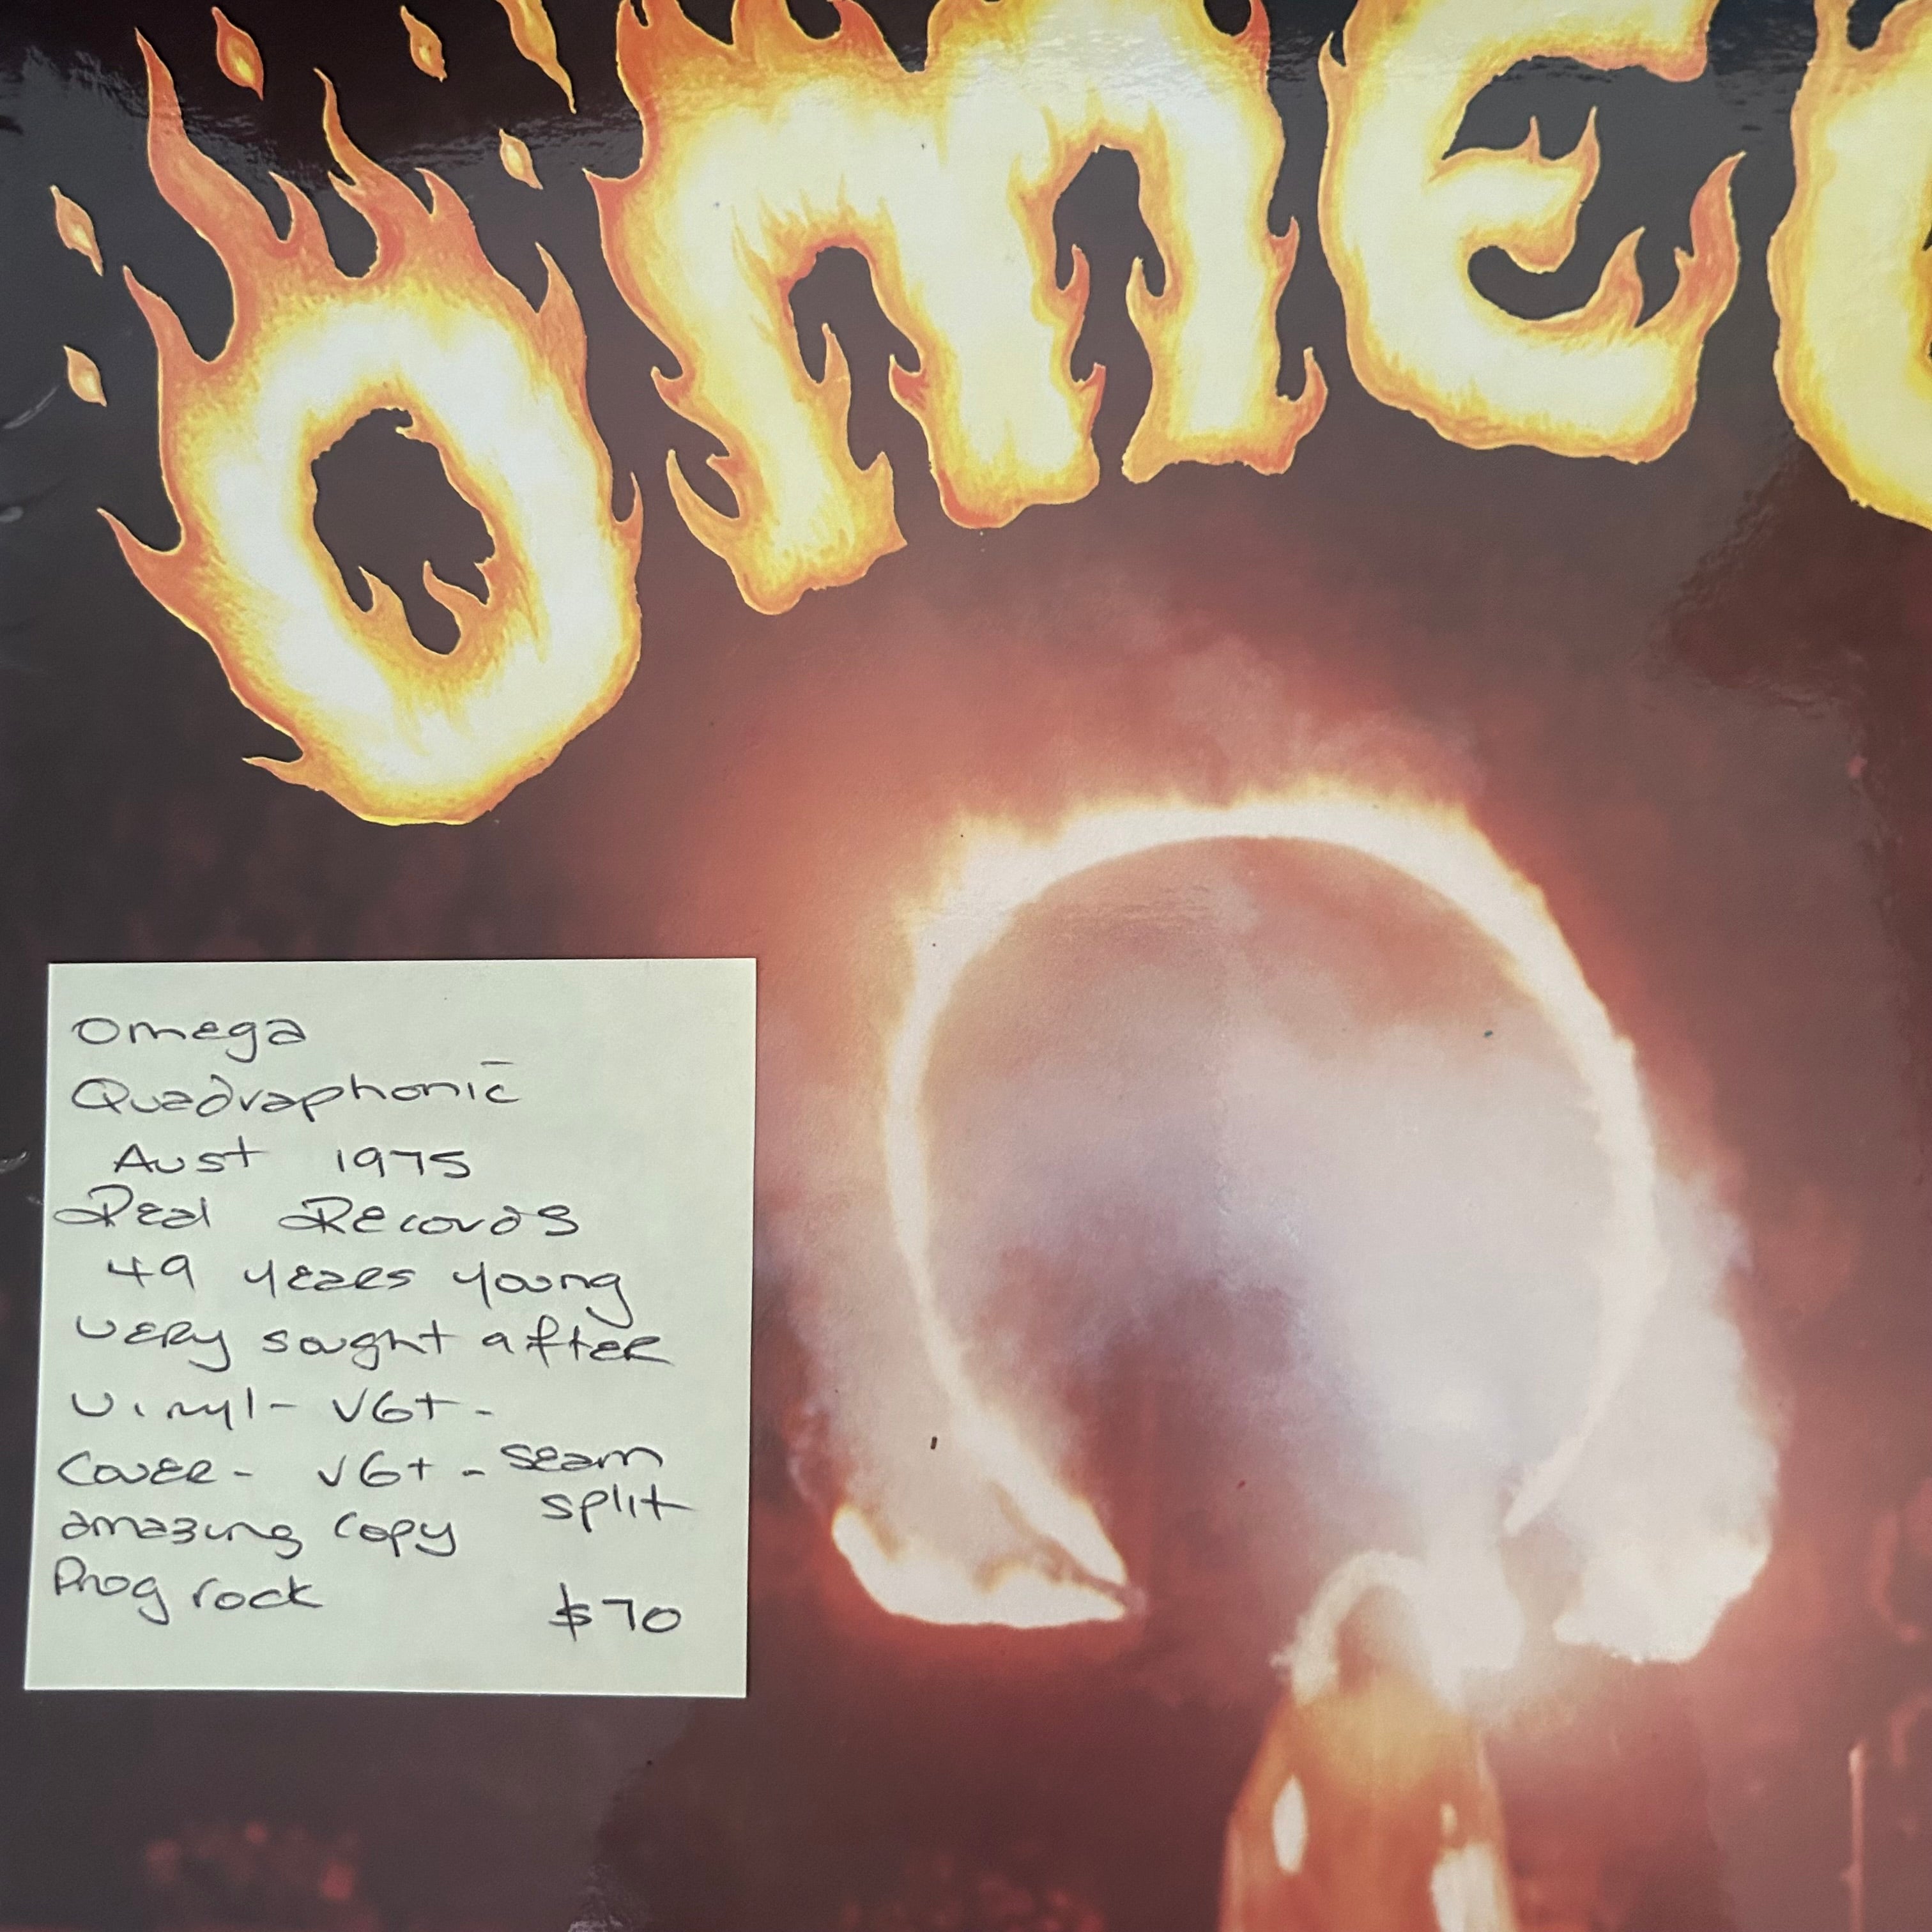 OMEG
Omega
Quadraphonic
Aust 1975
Real Records
49 years young
very sought after
Vinyl - VG+ -
Cover - VG+ - seam
split
amazing copy
Prog rock
$70